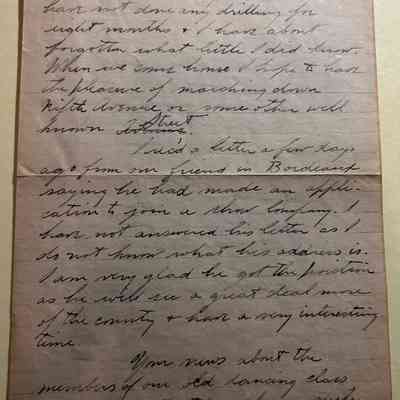 have not done any drilling for
eight months & I have about
forgotten what little I did know.
When we come home I hope to have
the pleasure of marching down
Fifth Avenue or some other well
known Street
I rec'd a letter a few days
ago from our friend in Bordeaux
saying he had made an appli-
cation to join a show company. I
have not answered his letter as I
do not know what his address is.
I am very glad he got the position
as he will see a great deal more
of the country & have a very interesting
time.
Your news about the
members of our old dancing class